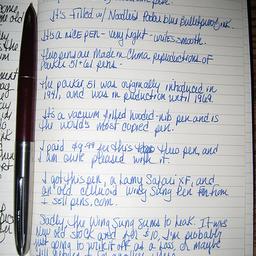 It's filled w/ Noodlers Polar blue Bulletproof ink.
It's a nice pen - very light - writes smooth.
Hero pens are Made in China reproductions of
Parker 51 + 61 pens -
the parker 51 was originally introduced in
1941, and was in production until 1969.
It's a vacuum filled hooded-nib pen and is
the world's most copied pen.
I paid $9.99 for this Hero pen, and I
am quite pleased with it.
I got this pen, a Lamy Safari XF, and
an old celluloid Wing Sung Pen from
I sell pens.com.
Sadly the Wing Sung seems to leak. It was
New old stock and for $10, I'm probably
just going to write it off as a loss, or maybe